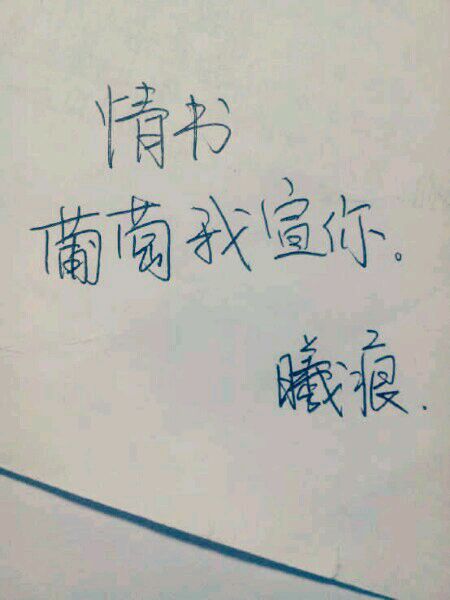 情书
葡萄我宣你。
曦痕.